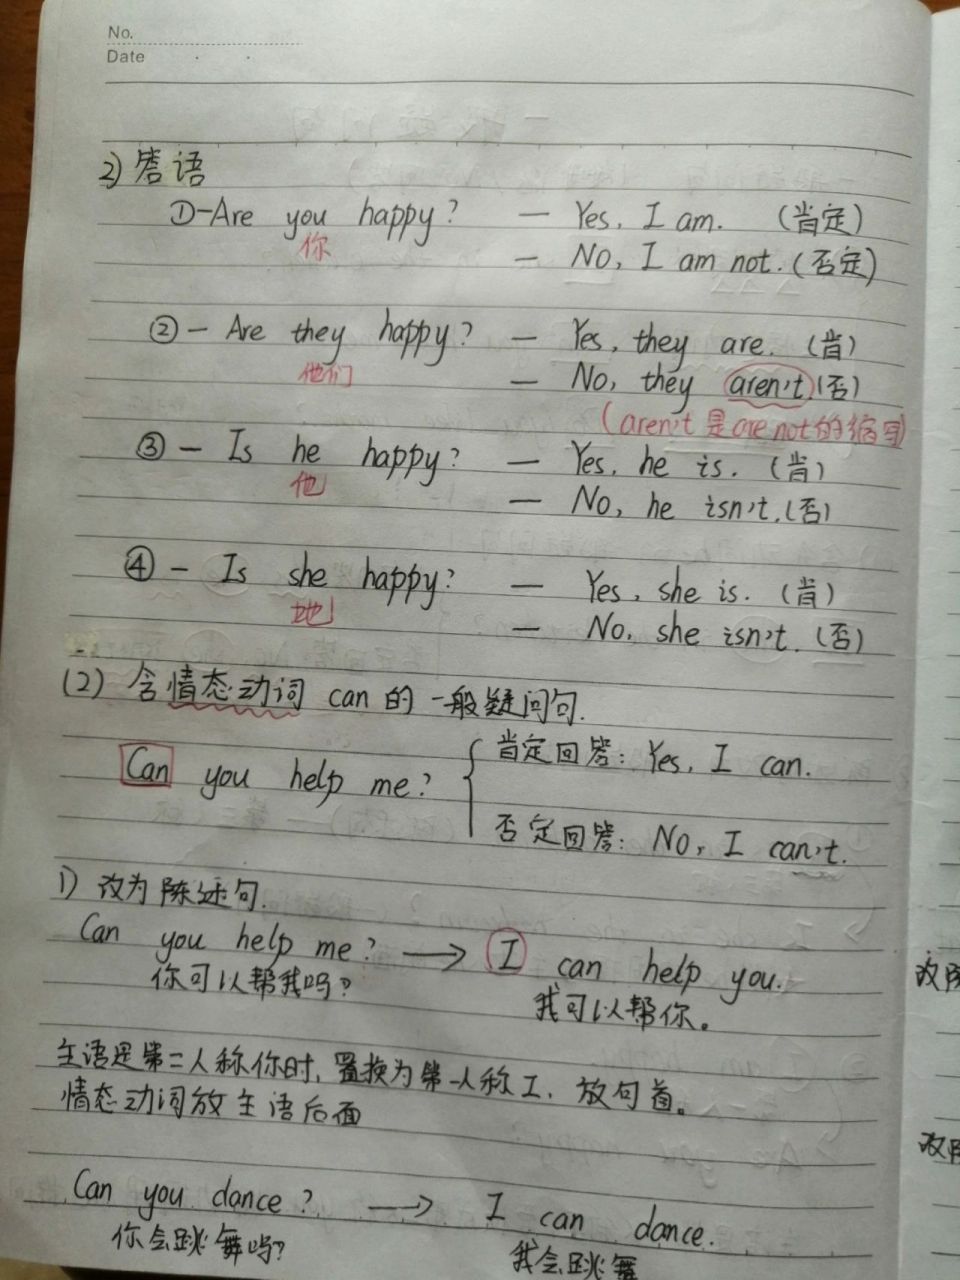 No.
Date
2) 答语
①-Are you happy? — Yes, I am. (肯定)
你
— No, I am not. (否定)
② - Are they happy? — Yes, they are. (肯)
他们
— No, they aren't (否)
(aren't 是 are not 的缩写)
③ - Is he happy? — Yes, he is. (肯)
他
— No, he isn't. (否)
④ - Is she happy? — Yes, she is. (肯)
她
— No, she isn't. (否)
(2) 含情态动词 can 的一般疑问句.
肯定回答: Yes, I can.
Can you help me?
否定回答: No, I can't.
1) 改为陈述句.
Can you help me? → I can help you.
你可以帮我吗? 我可以帮你。
主语是第二人称你时, 置换为第一人称I, 放句首。
情态动词放主语后面
Can you dance? → I can dance.
你会跳舞吗? 我会跳舞